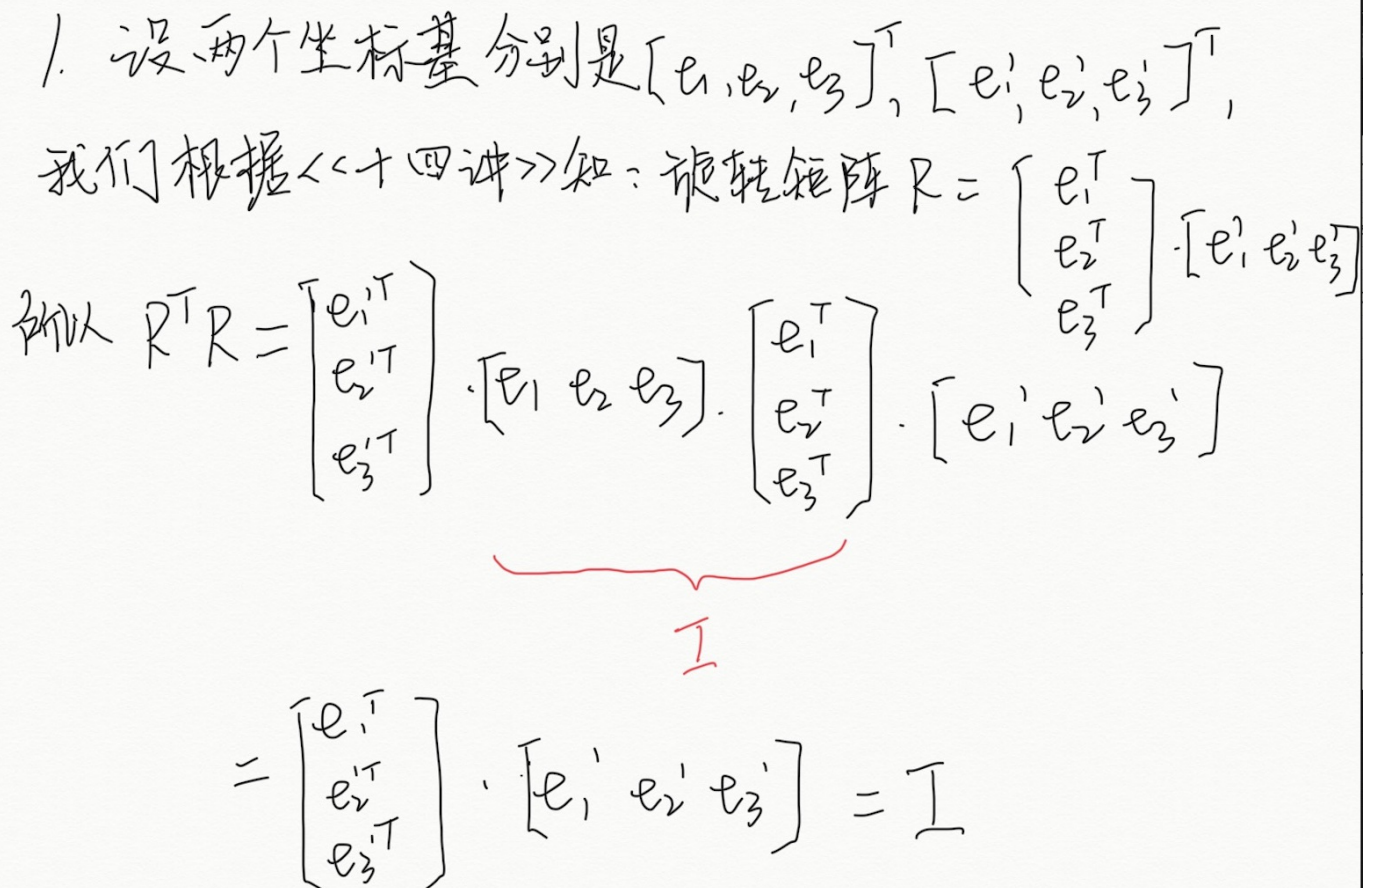 1. 设两个坐标基分别是[e₁,e₂,e₃]ᵀ, [e₁',e₂',e₃']ᵀ,
我们根据<<十四讲>>知:旋转矩阵 R = [e₁ᵀ e₂ᵀ e₃ᵀ]·[e₁' e₂' e₃']
所以 RᵀR = [e₁'ᵀ e₂'ᵀ e₃'ᵀ]·[e₁ e₂ e₃]·[e₁ᵀ e₂ᵀ e₃ᵀ]·[e₁' e₂' e₃']
I
= [e₁'ᵀ e₂'ᵀ e₃'ᵀ]·[e₁' e₂' e₃'] = I